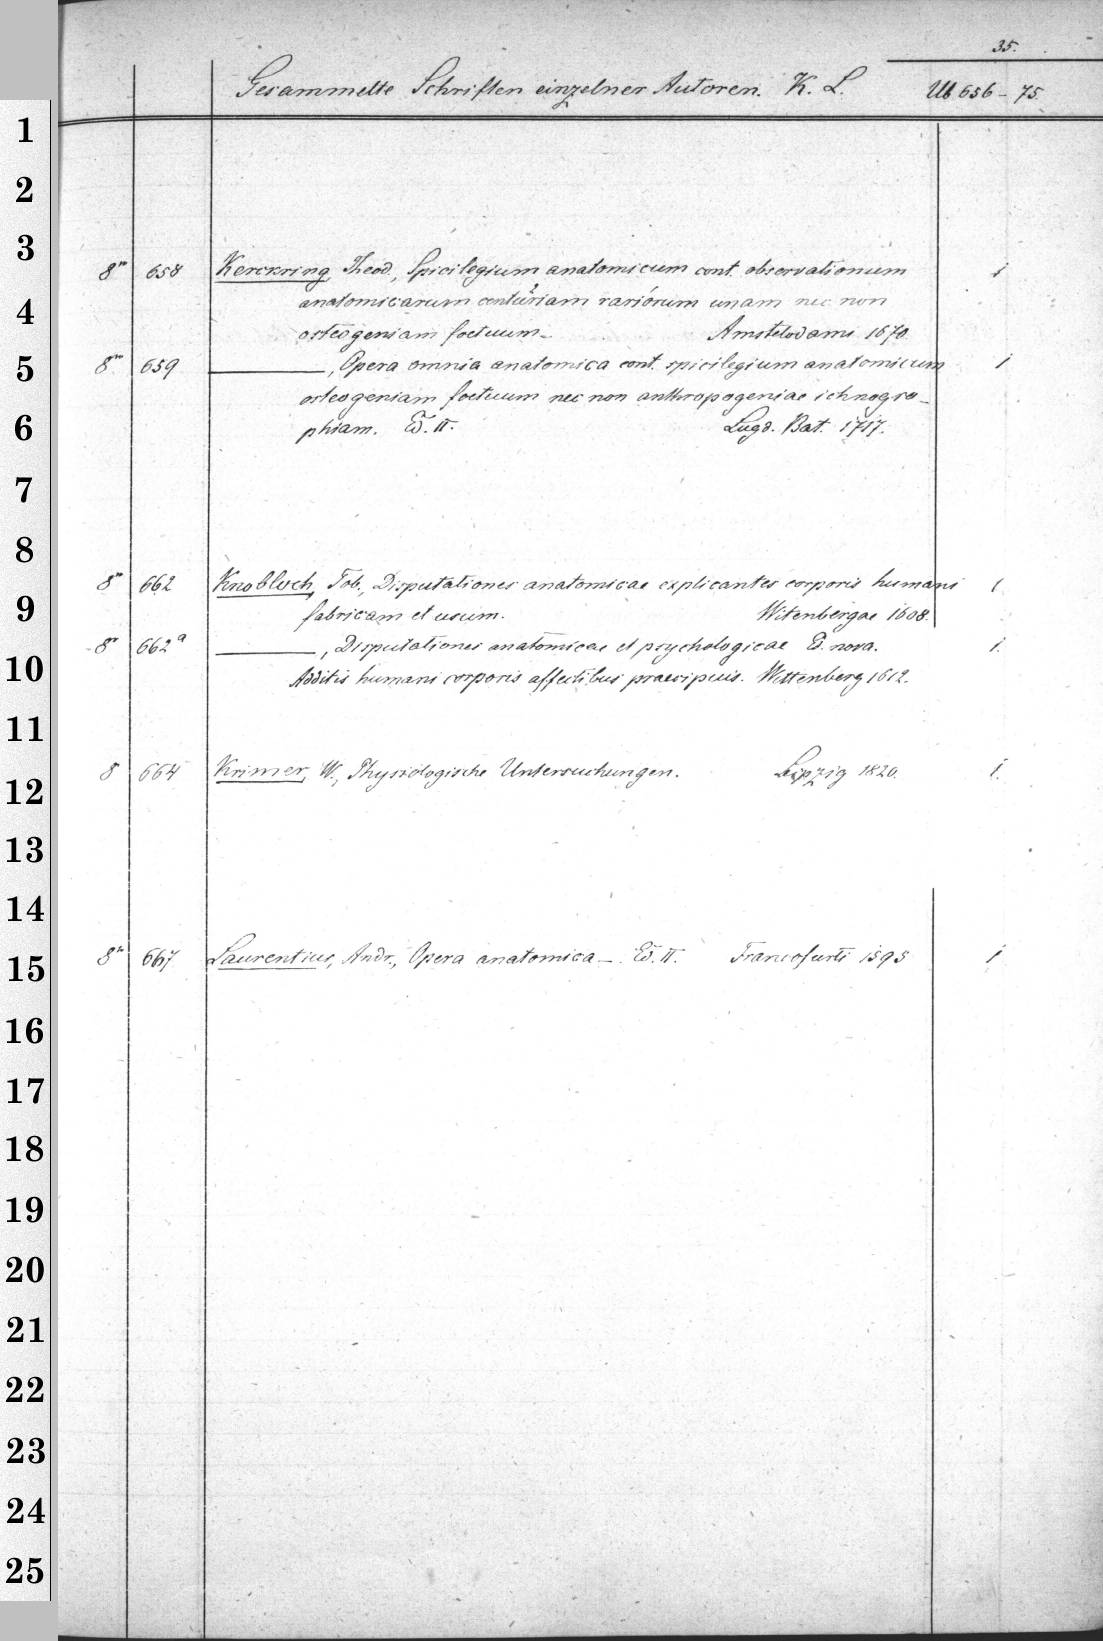 35.
Gesammelte Schriften einzelner Autoren. K. L. Ub 656-75.
1
2
3
8° 658 Kerckring, Theod., Spicilegium anatomicum cont. observationum 1
anatomicarum centuriam rariorum unam nec non
4
osteogeniam foetuum. Amstelodami 1670.
5
8° 659 ———, Opera omnia anatomica cont. spicilegium anatomicum 1
osteogeniam foetuum nec non anthropogeniae ichnogra-
6
phiam. Ed. II. Lugd. Bat. 1717.
7
8
8° 662 Knobloch, Tob., Disputationes anatomicae explicantes corporis humani 1
9
fabricam et usum. Witenbergae 1608.
8° 662a ———, Disputationes anatomicae et psychologicae Ed. nova. 1.
10
Additis humani corporis affectibus praecipuis. Wittenberg 1612.
11
8 664 Krimer, W., Physiologische Untersuchungen. Leipzig 1820. 1.
12
13
14
8° 667 Laurentius, Andr., Opera anatomica — Ed. II. Francofurti 1595 1
15
16
17
18
19
20
21
22
23
24
25